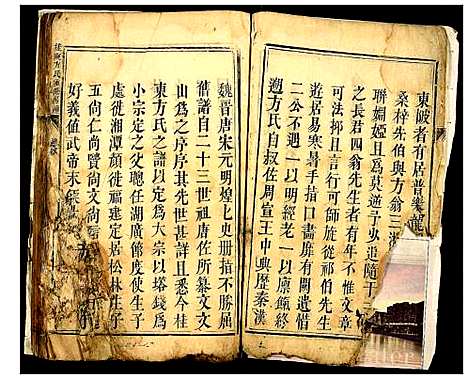 東陂者有居普樂龍
桑梓先伯與方翁三湘
聯婣婭且為莫逆予少追隨于二
之長君四翁先生者有年不惟文章
可法抑且言行可師旋從驥伯先生
遊居易寒暑手指口畫靡有闕遺惜
二公不遇一以明經老一以廩餼終
溯方氏自叔佐周宣王中興歷秦漢
魏晉唐宋元明煌上史冊指不勝屈
舊諳自二十三世祖唐佐所纂文文
山為之序序其先世甚詳且悉今桂
東方氏之譜以定為大宗以塔錢為
小宗定之父聰任湖廣節度使生子
處徙湘潭顏徙福建定居松林生子
五尚仁尚贒尚文尚
好義值武帝末